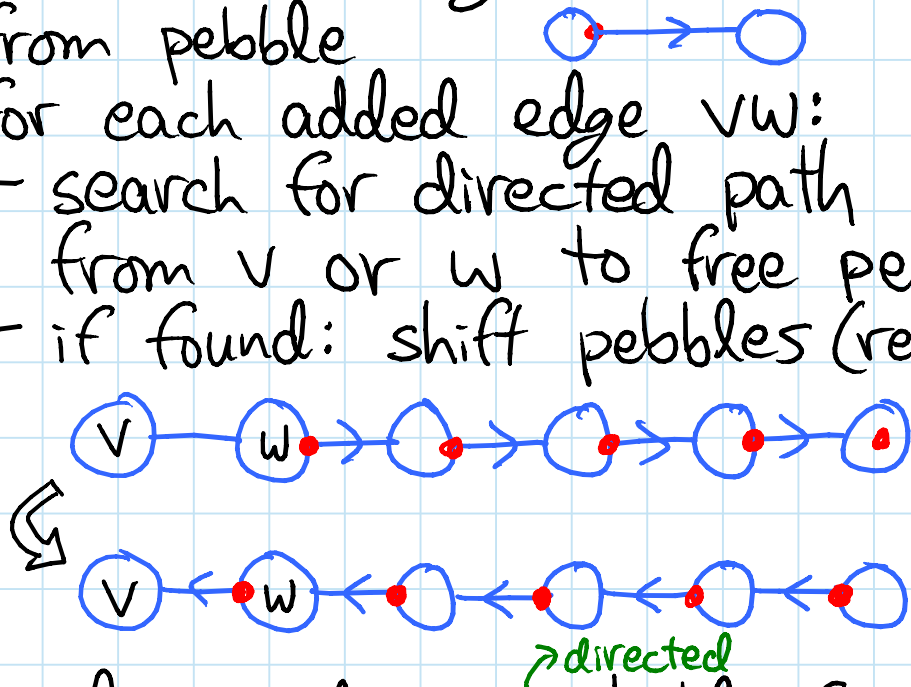 from pebble
for each added edge vw:
- search for directed path
from v or w to free pe
- if found: shift pebbles (re
V W
V W
directed